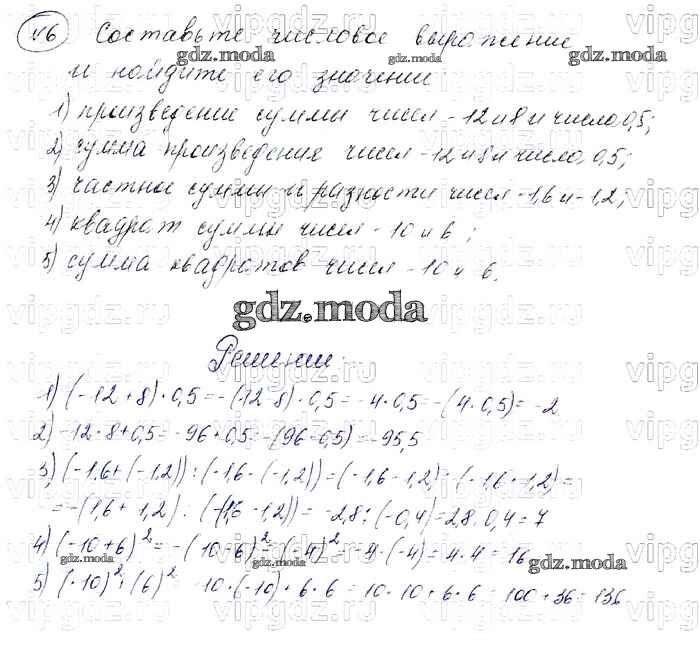 №6 Составьте числовое выражение
и найдите его значении
1) произведение суммы чисел -12 и 8 и число 0,5;
2) сумма произведения чисел -12 и 8 и число 0,5;
3) частное суммы и разности чисел -1,6 и -1,2;
4) квадрат суммы чисел -10 и 6;
5) сумма квадратов чисел -10 и 6.
gdz.moda
Решении.
1) (-12+8)·0,5=-(12-8)·0,5=-4·0,5=-(4·0,5)=-2
2) -12·8+0,5=-96+0,5=-(96-0,5)=-95,5
3) (-1,6+(-1,2)):(-1,6-(-1,2))=(-1,6-1,2):(-1,6+1,2)=
=-(1,6+1,2):(-(1,6-1,2))=-2,8:(-0,4)=2,8:0,4=7
4) (-10+6)²=-(10-6)²=(-4)²=-4·(-4)=4·4=16
5) (-10)²+(6)² 10·(-10)+6·6=10·10+6·6=100+36=136